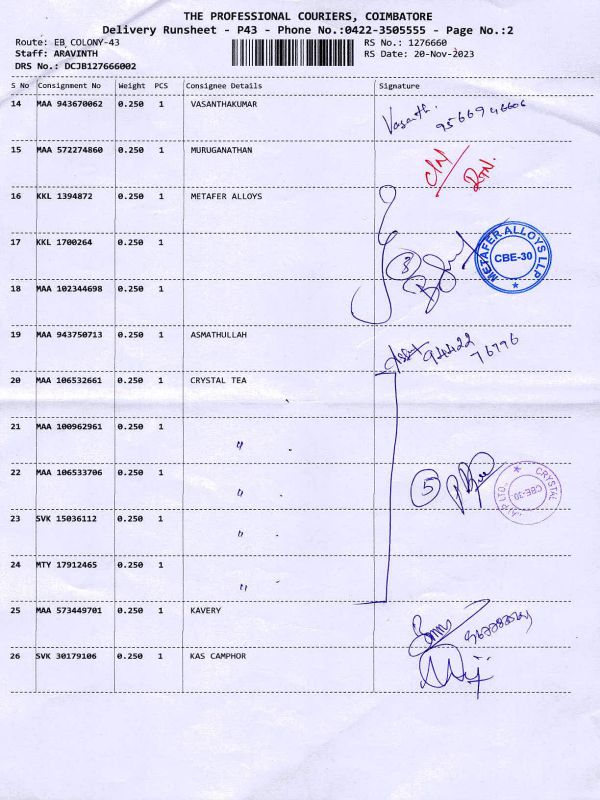 THE PROFESSIONAL COURIERS, COIMBATORE
Delivery Runsheet - P43 - Phone No.:0422-3505555 - Page No.:2
Route: EB COLONY-43 RS No.: 1276660
Staff: ARAVINTH RS Date: 20-Nov-2023
DRS No.: DCJB127666002
S No Consignment No Weight PCS Consignee Details Signature
14 MAA 943670062 0.250 1 VASANTHAKUMAR Vasanth.
15 MAA 572274860 0.250 1 MURUGANATHAN
16 KKL 1394872 0.250 1 METAFER ALLOYS
17 KKL 1700264 0.250 1
METAFER ALLOYS LLP
CBE-30
3
18 MAA 102344698 0.250 1
19 MAA 943750713 0.250 1 ASMATHULLAH
94422
76796
20 MAA 106532661 0.250 1 CRYSTAL TEA
21 MAA 100962961 0.250 1 "
22 MAA 106533706 0.250 1 " 5
CRYSTAL
CBE-30
23 SVK 15036112 0.250 1 "
24 MTY 17912465 0.250 1 "
25 MAA 573449701 0.250 1 KAVERY
26 SVK 30179106 0.250 1 KAS CAMPHOR